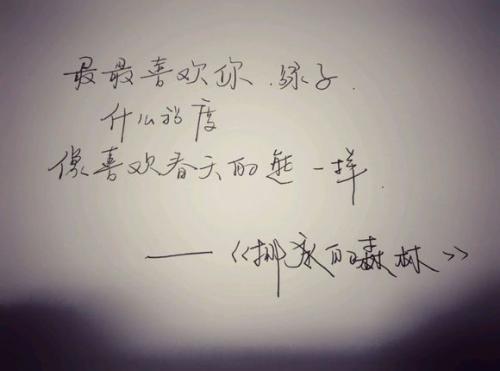 最最喜欢你.绿子.
什么程度
像喜欢春天的熊一样.
——《挪威的森林》